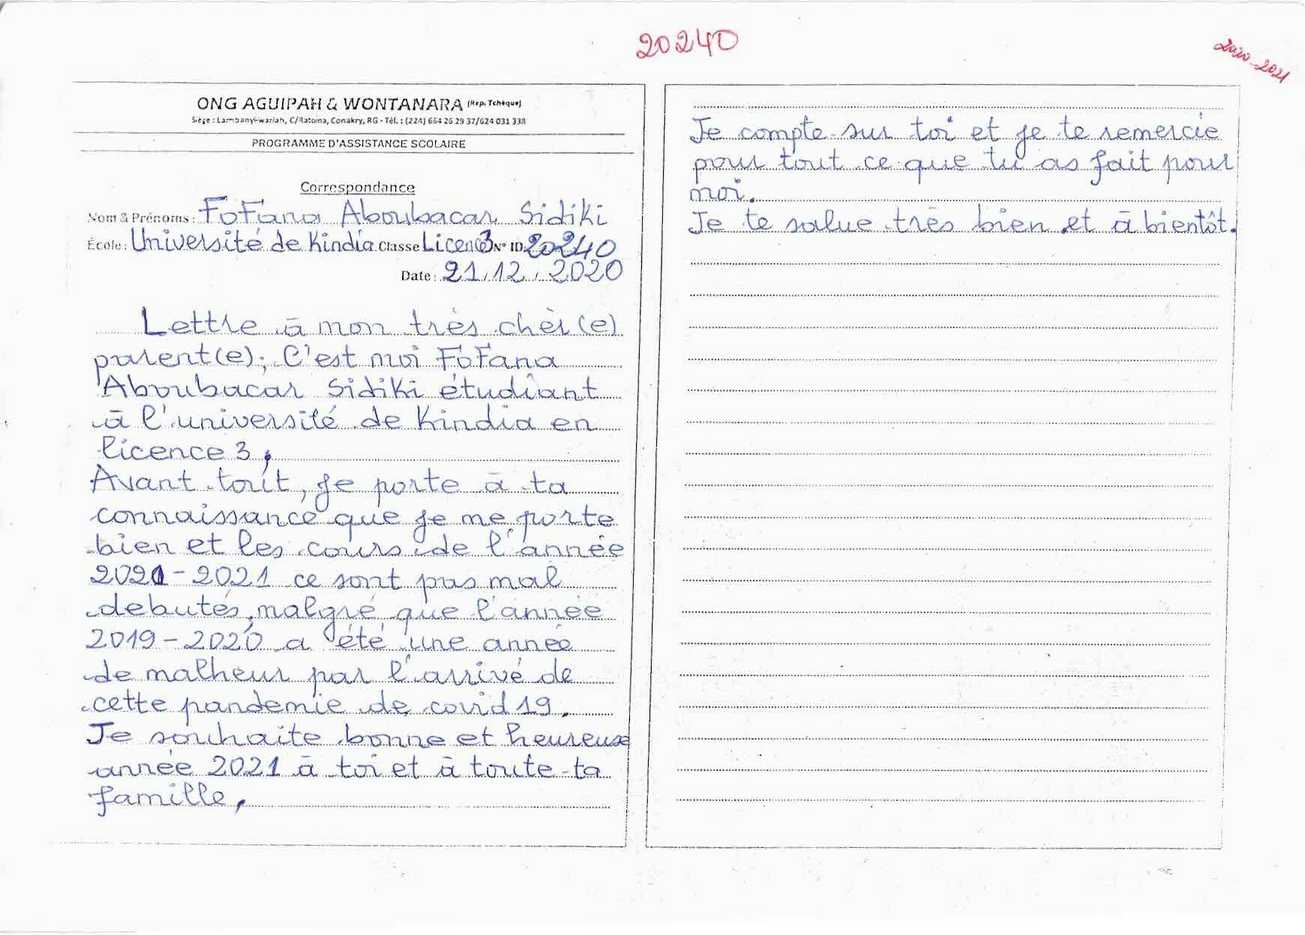 20240
2020-2021
ONG AGUIPAH & WONTANARA (Rep. Tchèque)
Siège : Lambanyi-wariah, C/Ratoma, Conakry, RG - Tél. : (224) 664 26 29 37/624 031 338
PROGRAMME D'ASSISTANCE SCOLAIRE
Correspondance
Nom & Prénoms : FoFana Aboubacar Sidiki
École : Université de Kindia Classe Licence3 N° ID 20240
Date : 21/12/2020
Lettre à mon très chèr(e)
parent(e); C'est moi FoFana
Aboubacar Sidiki étudiant
à l'université de Kindia en
licence 3,
Avant tout, je porte à ta
connaissance que je me porte
bien et les cours de l'année
2020-2021 ce sont pas mal
debutés, malgré que l'année
2019-2020 a été une année
de malheur par l'arrivé de
cette pandemie de covid 19.
Je souhaite bonne et heureuse
année 2021 à toi et à toute ta
famille,
Je compte sur toi et je te remercie
pour tout ce que tu as fait pour
moi.
Je te salue très bien et à bientôt.